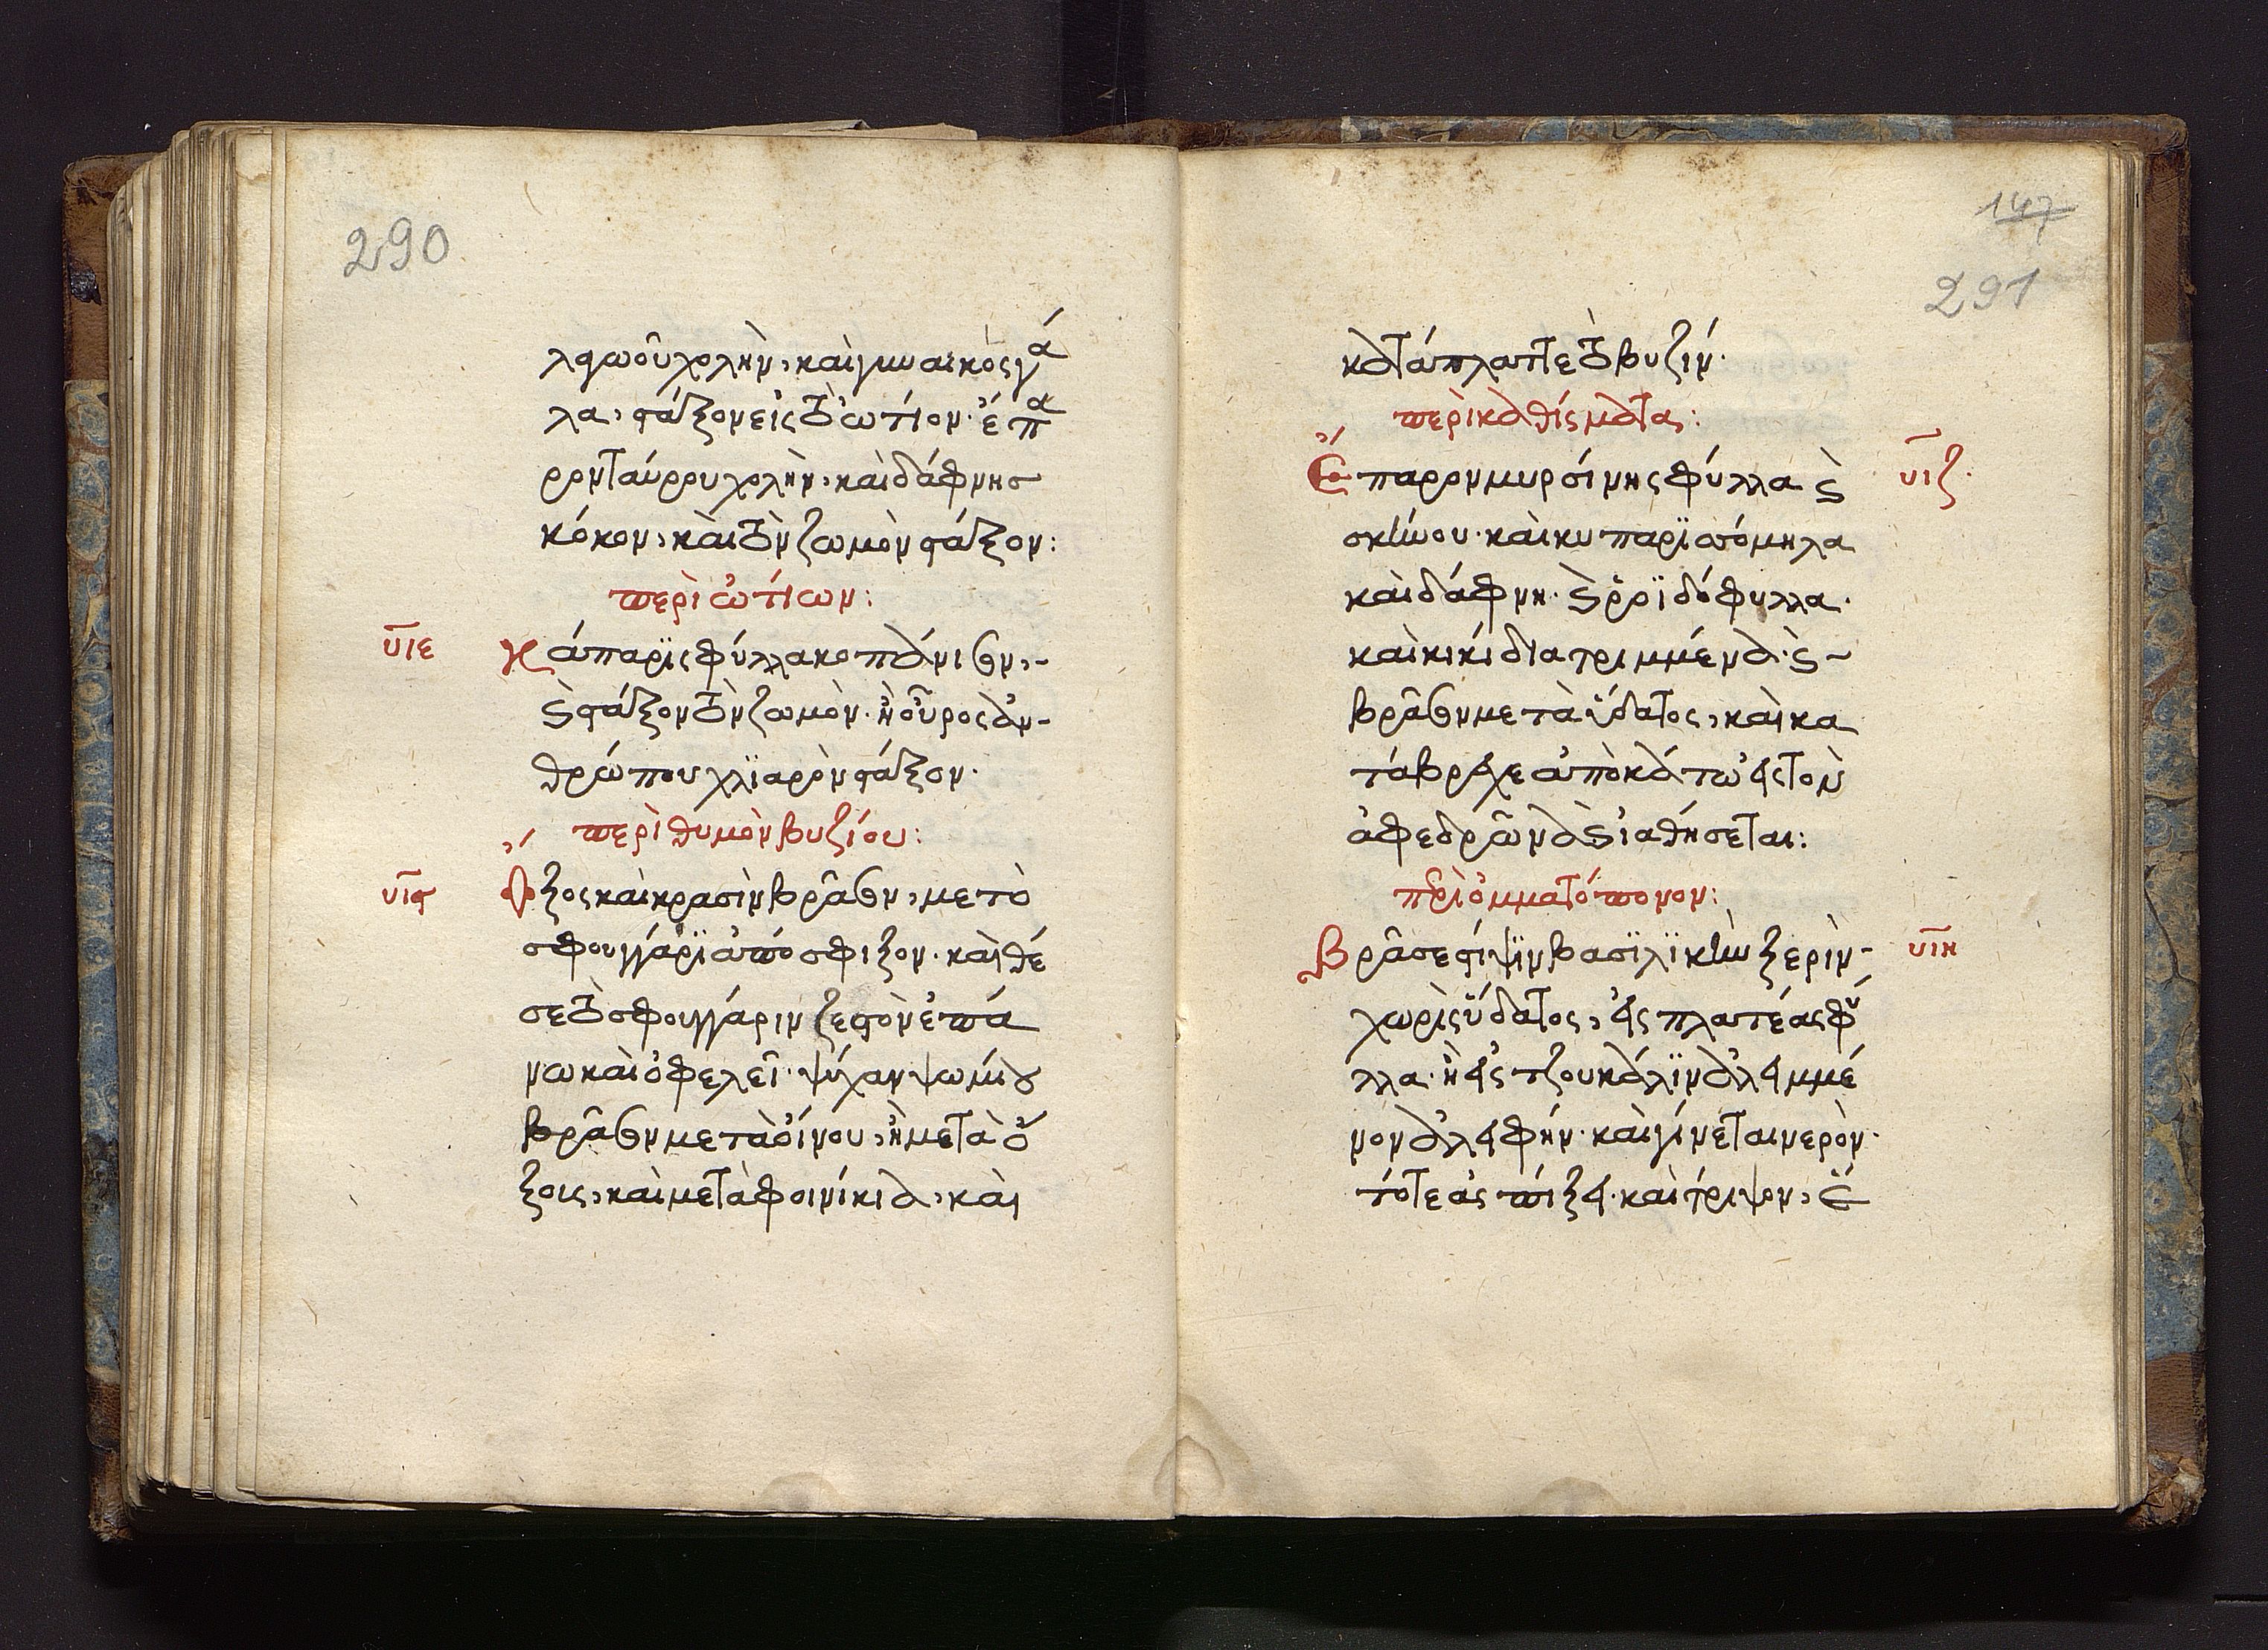 290
λφωοῦ χολὴν, καὶ γυναικὸς γά
λα, στάξον εἰς τὸ ὠτίον· ἔπα
ρον ταύρου χολὴν, καὶ δάφνησ
κόκον, καὶ τὸν ζωμὸν στάξον:
περὶ ὠτίων:
υιε Κάπαρις φύλλα κοπάνισον,-
καὶ στάξον τὸν ζωμὸν· ἢ οὖρος ἀν-
θρώπου χλϊαρὸν στάξον.
περὶ θυμὸν βυζίου:
υιϛ Ὄξος καὶ κρασὶν βράσον, με τὸ
σφουγγάρϊ ἀπόσφιξον. καὶ θέ
σε τὸ σφουγγάριν ζεστὸν ἐπά
νω καὶ ὀφελεῖ. ψίχαν ψωμίου
βράσον μετὰ οἴνου, ἢ μετὰ ὄ
ξους, καὶ μετὰ φοινίκια, καὶ
147
291
κατάπλαττε τὸ βυζίν.
περὶ καθίσματα:
υιζ. Ἔπαρον μυρσίνης φύλλα καὶ
σκίνου. καὶ κυπαρϊσόμηλα
καὶ δάφνη. καὶ ῥοϊδόφυλλα.
καὶ κικίδια τριμμένα. καὶ
βράσον μετὰ ὕδατος, καὶ κα
τάβρεχε ἀπὸ κάτω εἰς τὸν
ἀφεδρῶνα καὶ ἰαθήσεται:
περὶ ὀμματόπονον:
υιη Βράσε στίψϊν βασϊλϊκὴν ξερὶν-
χωρὶς ὕδατος, εἰς πλατέας φύ
λλα. ἢ εἰς τζουκάλϊν ἀλειμμέ
νον ἀλειφήν. καὶ γίνεται νερὸν.
τότε ἀς πίξει. καὶ τρίψον, ἔ